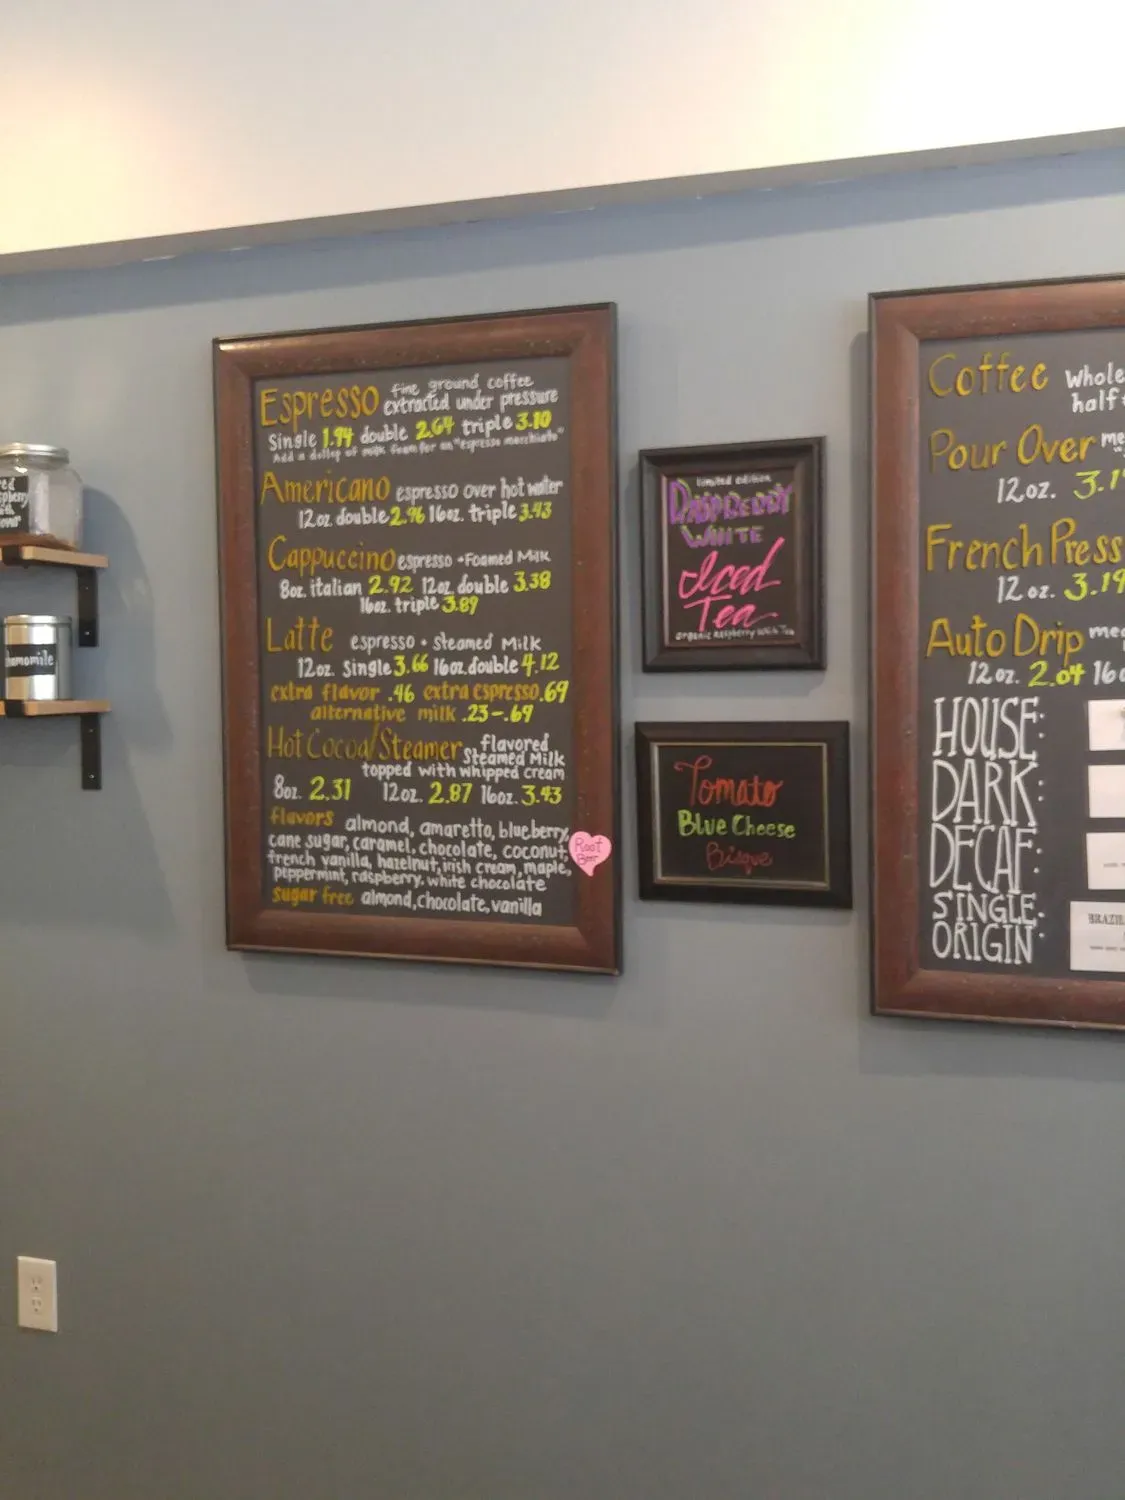 Espresso fine ground coffee
extracted under pressure
Single 1.94 double 2.64 triple 3.10
Add a dollop of milk foam for an "espresso macchiato"
Americano espresso over hot water
12oz. double 2.96 16oz. triple 3.43
Cappuccino espresso + Foamed Milk
8oz. italian 2.92 12oz. double 3.38
16oz. triple 3.89
Latte espresso + Steamed Milk
12oz. Single 3.66 16oz. double 4.12
extra flavor .46 extra espresso .69
alternative milk .23-.69
Hot Cocoa/Steamer flavored
Steamed Milk
topped with whipped cream
8oz. 2.31 12oz. 2.87 16oz. 3.43
flavors almond, amaretto, blueberry,
cane sugar, caramel, chocolate, coconut,
french vanilla, hazelnut, irish cream, maple,
peppermint, raspberry, white chocolate
sugar free almond, chocolate, vanilla
Root
Beer
limited edition
Raspberry
White
Iced
Tea
organic Raspberry White Tea
Tomato
Blue Cheese
Bisque
Coffee Whole
half
Pour Over
12oz. 3.1
French Press
12oz. 3.19
Auto Drip
12oz. 2.04
HOUSE:
DARK:
DECAF:
SINGLE
ORIGIN:
BRAZIL